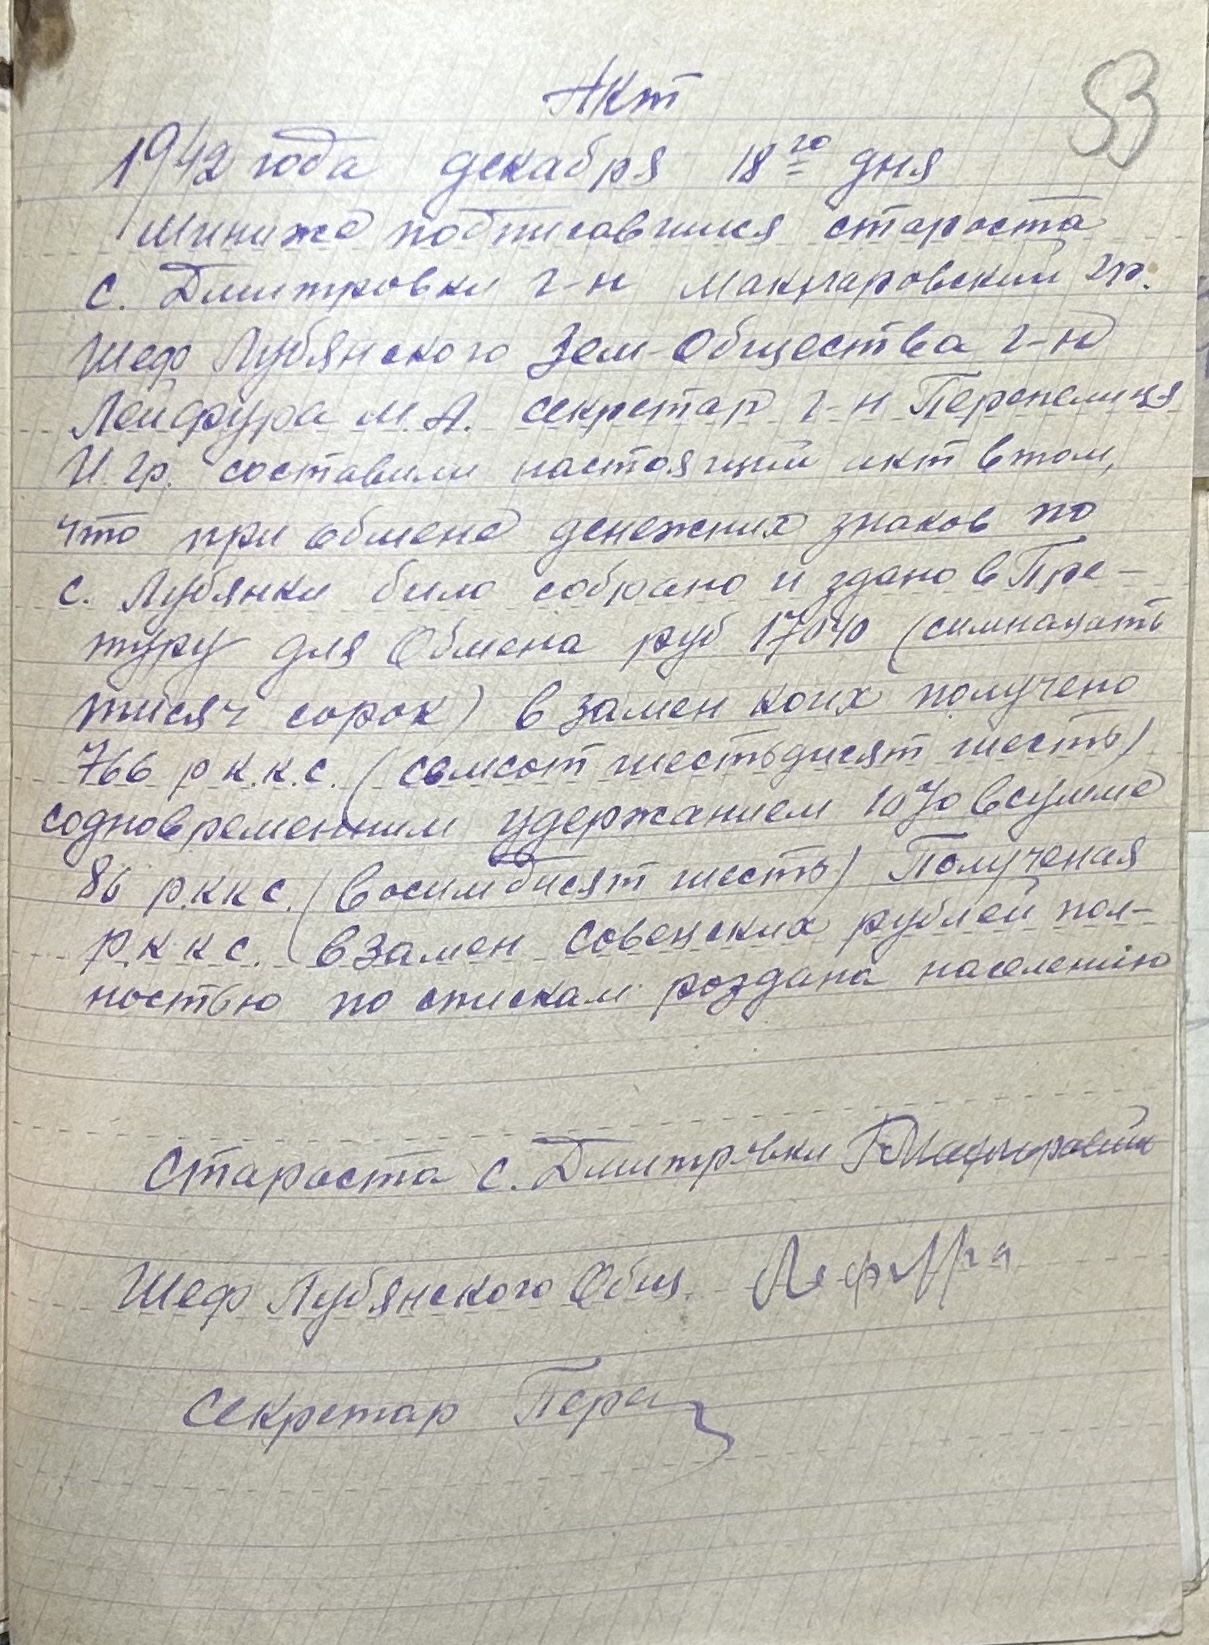 Акт
53
1942 года декабря 18го дня
Минижо подписавшися староста
с. Дмитровки г-н Макмаровский гр.
Шеф Лубянского Зем-Общества г-но
Лейфура М. А. секретар г-н Перепелиця
И. Гр. составили настоящий акт втом,
что при обмено денежних знаков по
с. Лубянки било собрано и здано в Пре-
туру для Обмена руб 17040 (симнацать
тисяч сорок) в замен коих получено
766 р к.к.с. (семсот шестьдисят шесть)
содновременним удержанием 10% всумме
86 р.к.к с. (восимдисят шесть) Полученая
р.к к с. взамен совецских рублей пол-
ностью по спискам роздана населению
Староста с. Дмитровки
Шеф Лубянского Общ.
Секретар Пере